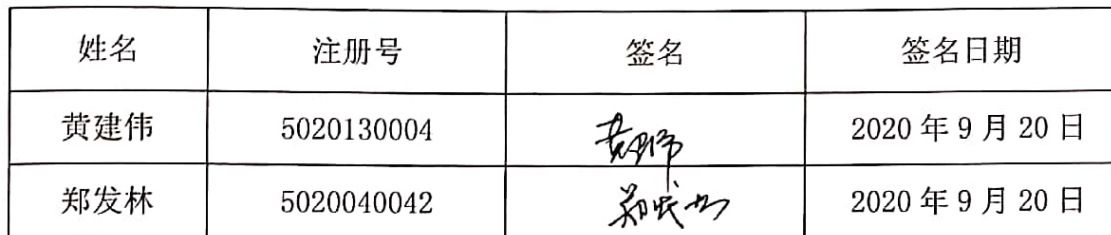 姓名 注册号 签名 签名日期
黄建伟 5020130004 黄建伟 2020年9月20日
郑发林 5020040042 2020年9月20日